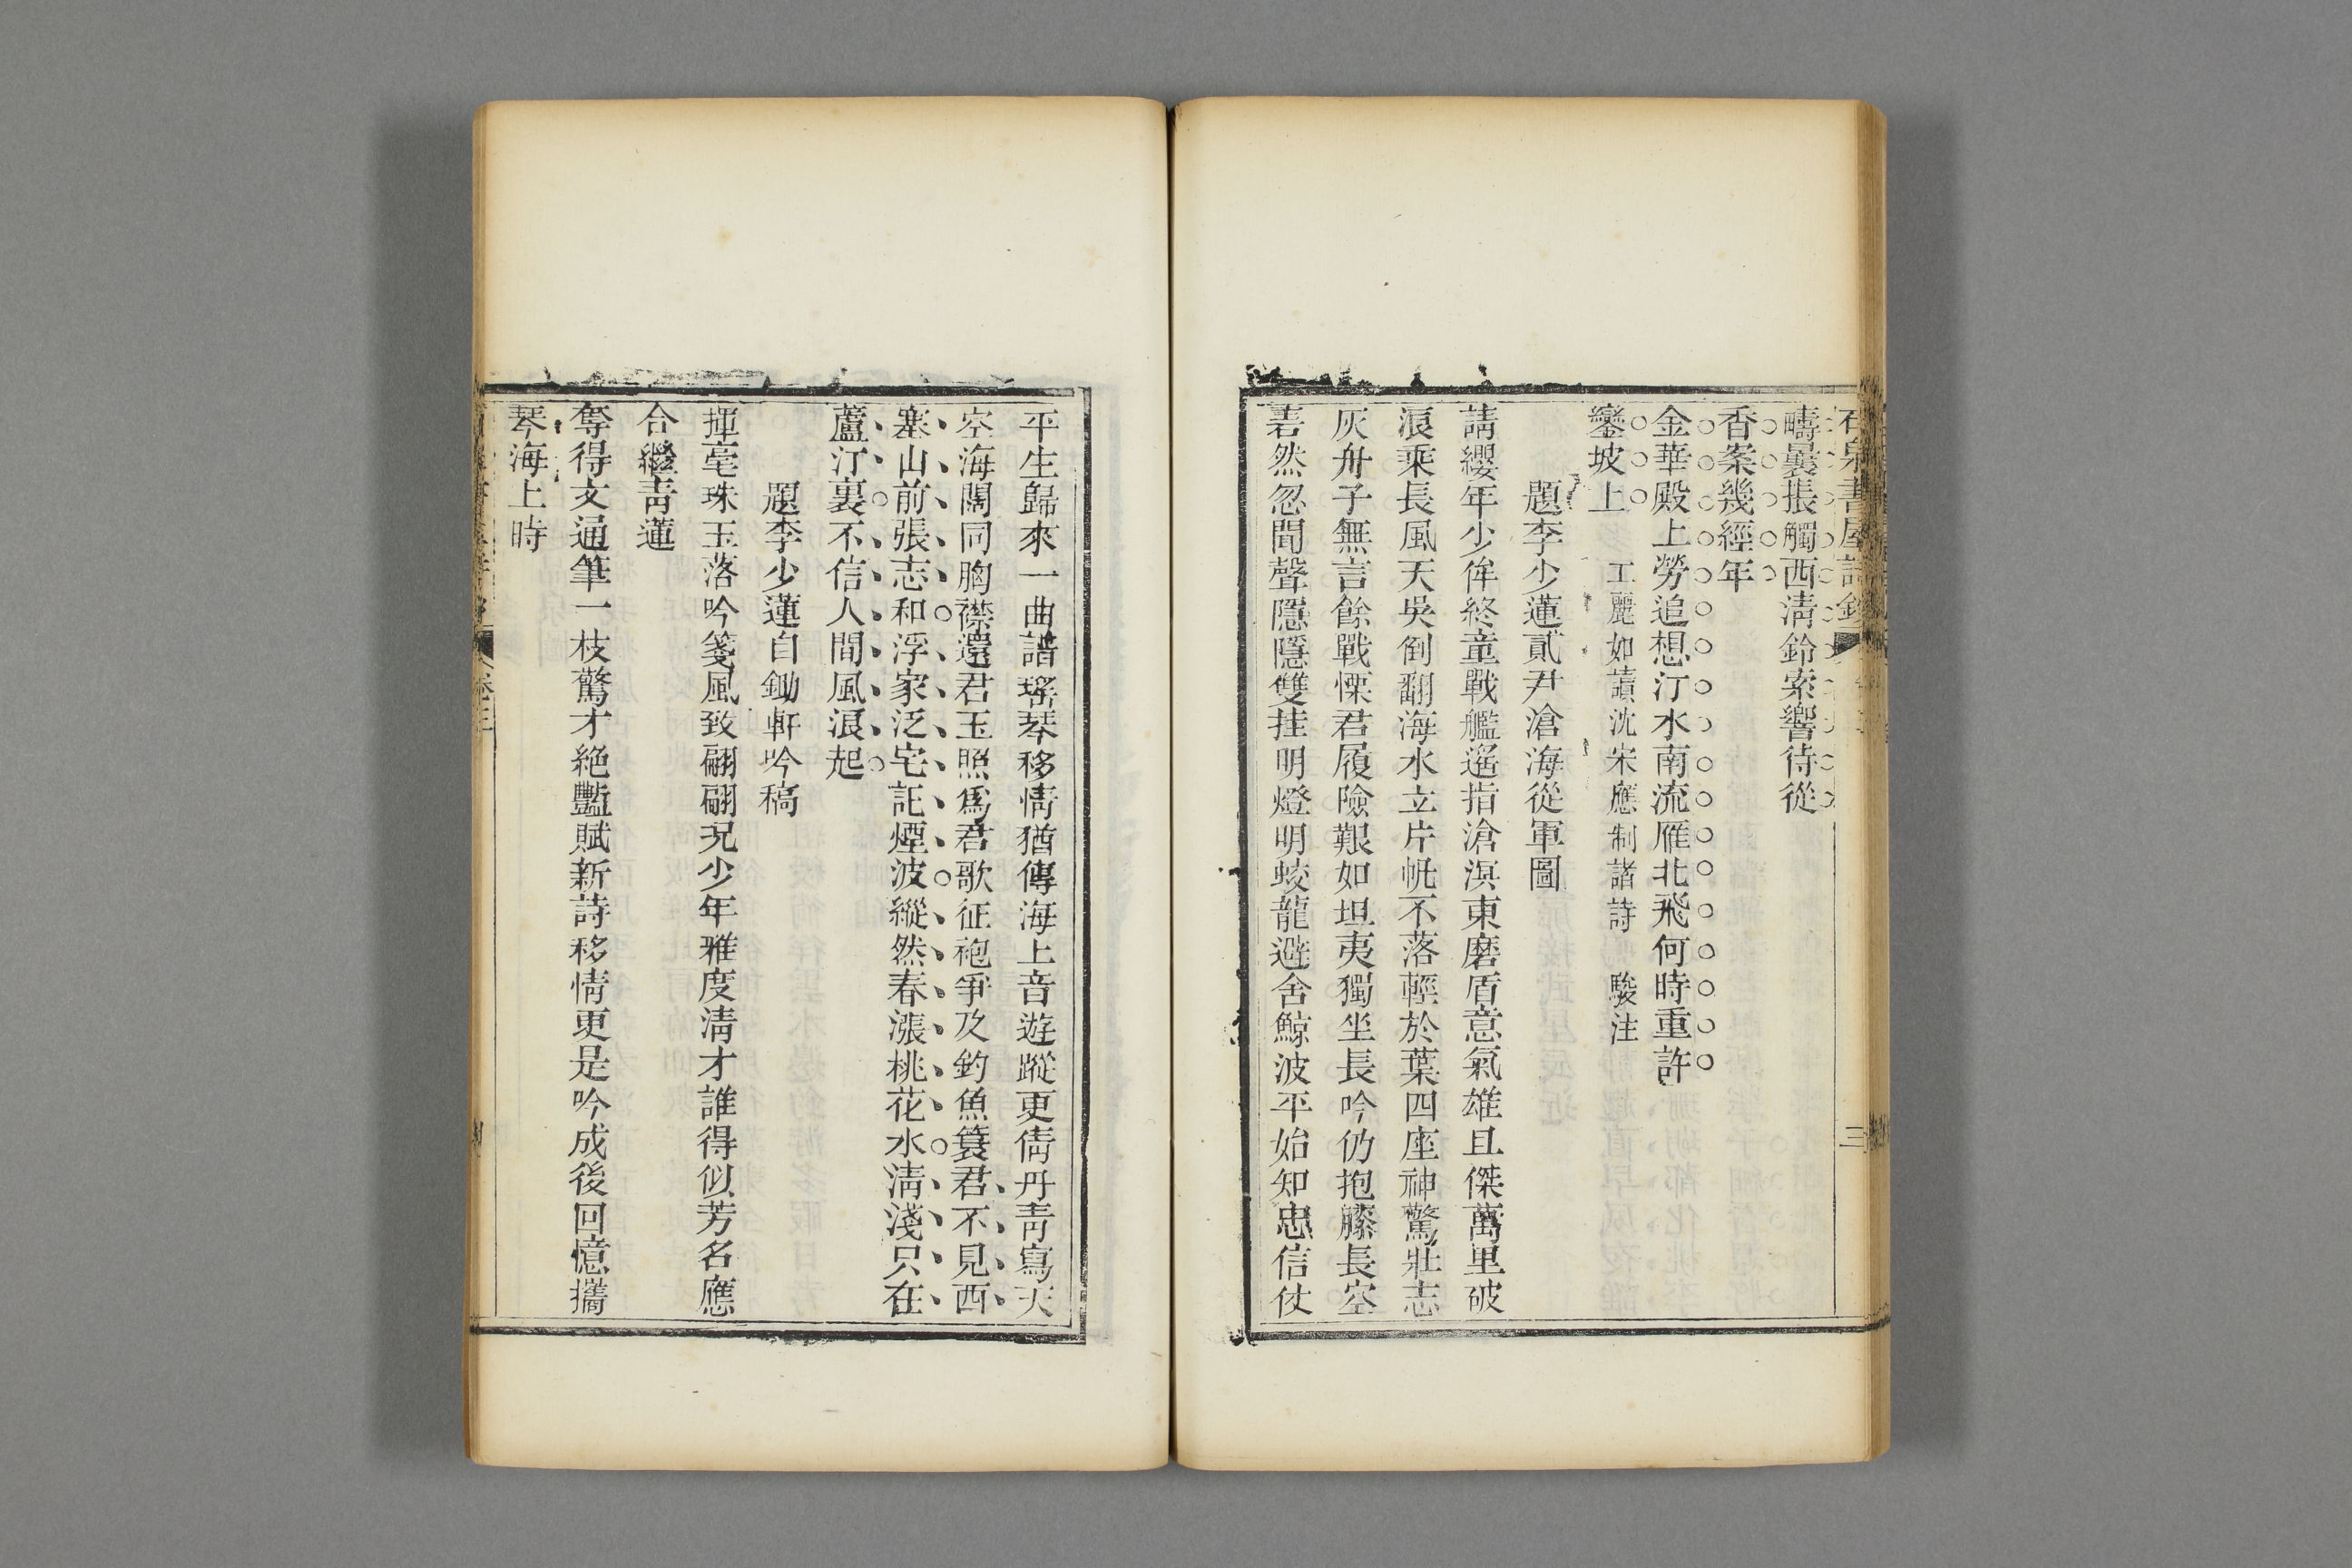 石泉書屋詩鈔
三
疇曩掁觸西淸鈴索響待從
香案幾經年
金華殿上勞追想汀水南流雁北飛何時重許
鑾坡上　工麗如讀沈宋應制諸詩　駿注
題李少蓮貳尹滄海從軍圖
請纓年少侔終童戰艦遙指滄溟東磨盾意氣雄且傑萬里破
浪乘長風天吳倒翻海水立片帆不落輕於葉四座神驚壯志
灰舟子無言餘戰慄君履險艱如坦夷獨坐長吟仍抱膝長空
砉然忽聞聲隱隱雙挂明燈明蛟龍避舍鯨波平始知忠信仗
平生歸來一曲譜瑤琴移情猶傳海上音遊蹤更倩丹靑寫天
空海闊同胸襟還君玉照爲君歌征袍爭及釣魚簑君不見西
塞山前張志和浮家泛宅託煙波縱然春漲桃花水淸淺只在
蘆汀裏不信人間風浪起
題李少蓮自鋤軒吟稿
揮毫珠玉落吟箋風致翩翩況少年雅度淸才誰得似芳名應
合繼靑蓮
奪得文通筆一枝驚才絕豔賦新詩移情更是吟成後回憶攜
琴海上時
卷三